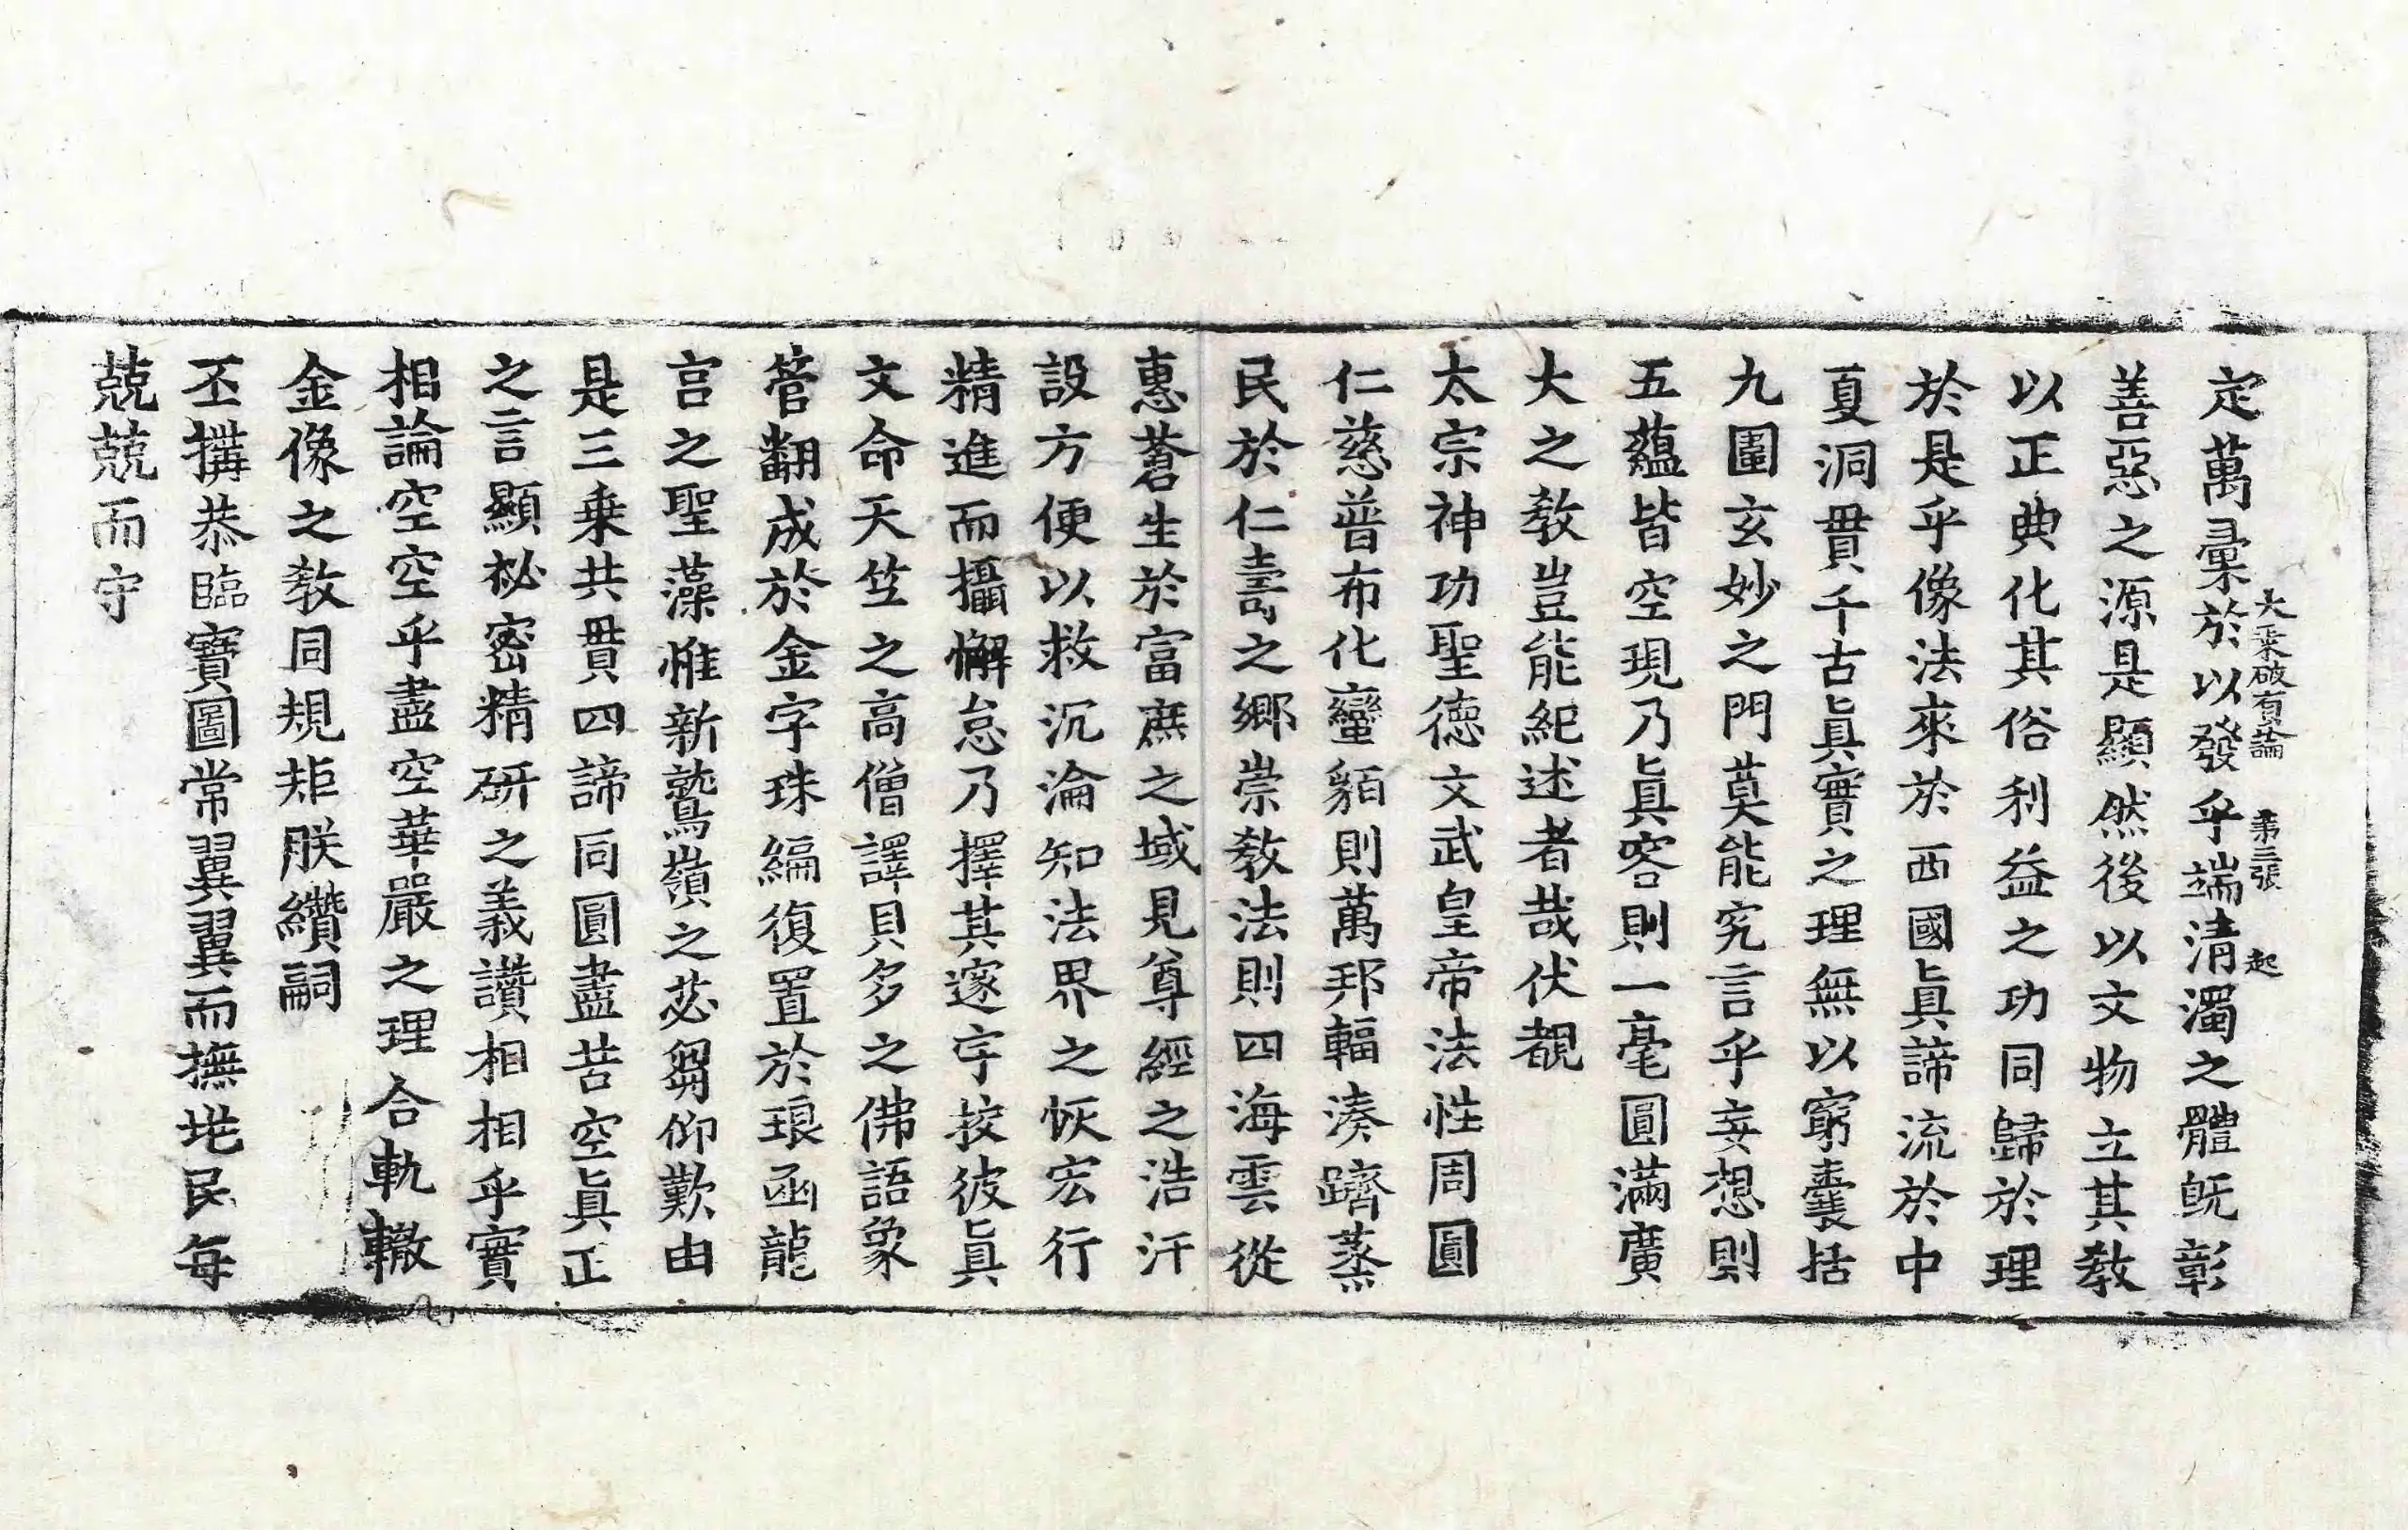 定萬彙於以發乎端清濁之體旣彰
大乘破有論 第三張 起
善惡之源是顯然後以文物立其敎
以正典化其俗利益之功同歸於理
於是乎像法來於西國眞諦流於中
夏洞貫千古眞實之理無以窮囊括
九圍玄妙之門莫能究言乎妄想則
五蘊皆空現乃眞容則一毫圓滿廣
大之敎豈能紀述者哉伏覩
太宗神功聖德文武皇帝法性周圓
仁慈普布化蠻貊則萬邦輻湊躋蒸
民於仁壽之鄉崇敎法則四海雲從
惠蒼生於富庶之域見尊經之浩汗
設方便以救沉淪知法界之恢宏行
精進而攝懈怠乃擇其邃宇按彼眞
文命天竺之高僧譯貝多之佛語象
管翻成於金字珠編復置於琅函龍
宫之聖藻惟新鷲嶺之苾芻仰歎由
是三乗共貫四諦同圓盡苦空眞正
之言顯祕密精硏之義讚相相乎實
相論空空乎盡空華嚴之理合軌轍
金像之敎同規矩朕纘嗣
丕搆恭臨寶圖常翼翼而撫地民每
兢兢而守